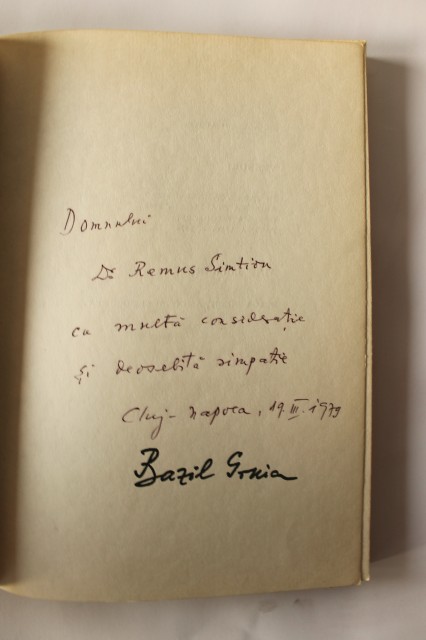 Domnului
Dr Remus Simtion
cu multă considerație
și deosebită simpatie
Cluj-Napoca, 19.III.1979
Bazil Gruia